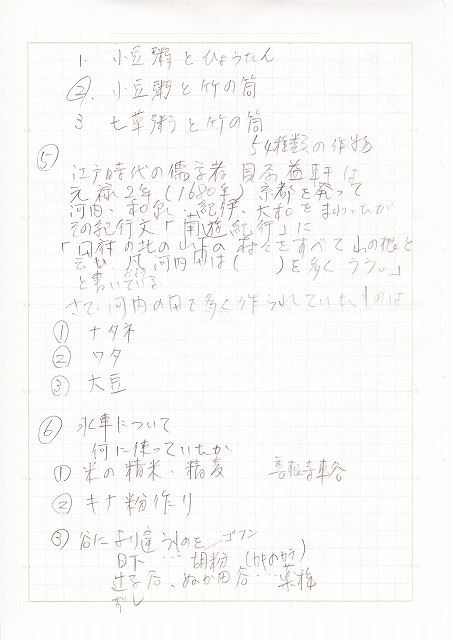 1. 小豆粥とひょうたん
②. 小豆粥と竹の筒
3. 七草粥と竹の筒
54種類の作物
⑤
江戸時代の儒学者 貝原益軒は
元禄2年(1680年) 京都を発って
河内、和泉、紀伊、大和をまわったが
その紀行文「南遊紀行」に
「田村の北の山下の村々をすべて山の根と
云い、凡河内国は(   )を多くうう。」
と書いている
さて河内の国で多く作られていたものは
① ナタネ
② ワタ
③ 大豆
⑥ 水車について
何に使っていたか
① 米の精米、精麦 善根寺車谷
② キナ粉作り
③ 谷により違うものを ゴフン
日下 … 胡粉 (カキのカラ)
辻子谷、ぬか田谷 … 薬種
ずし